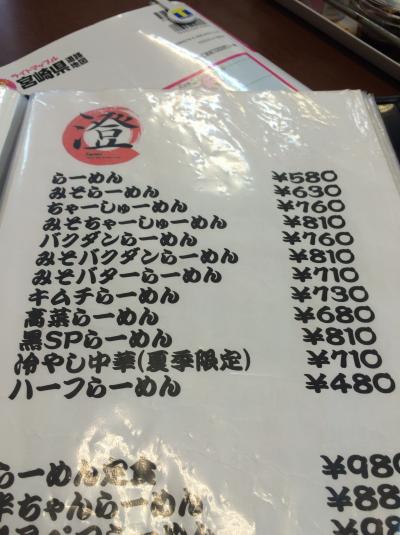 ライトマップル
宮崎県 道路地図
澄
らーめん ¥580
みそらーめん ¥630
ちゃーしゅーめん ¥760
みそちゃーしゅーめん ¥810
バクダンらーめん ¥760
みそバクダンらーめん ¥810
みそバターらーめん ¥710
キムチらーめん ¥730
高菜らーめん ¥680
黒SPらーめん ¥810
冷やし中華(夏季限定) ¥710
ハーフらーめん ¥480
らーめん定食 ¥980
ちゃんらーめん ¥88